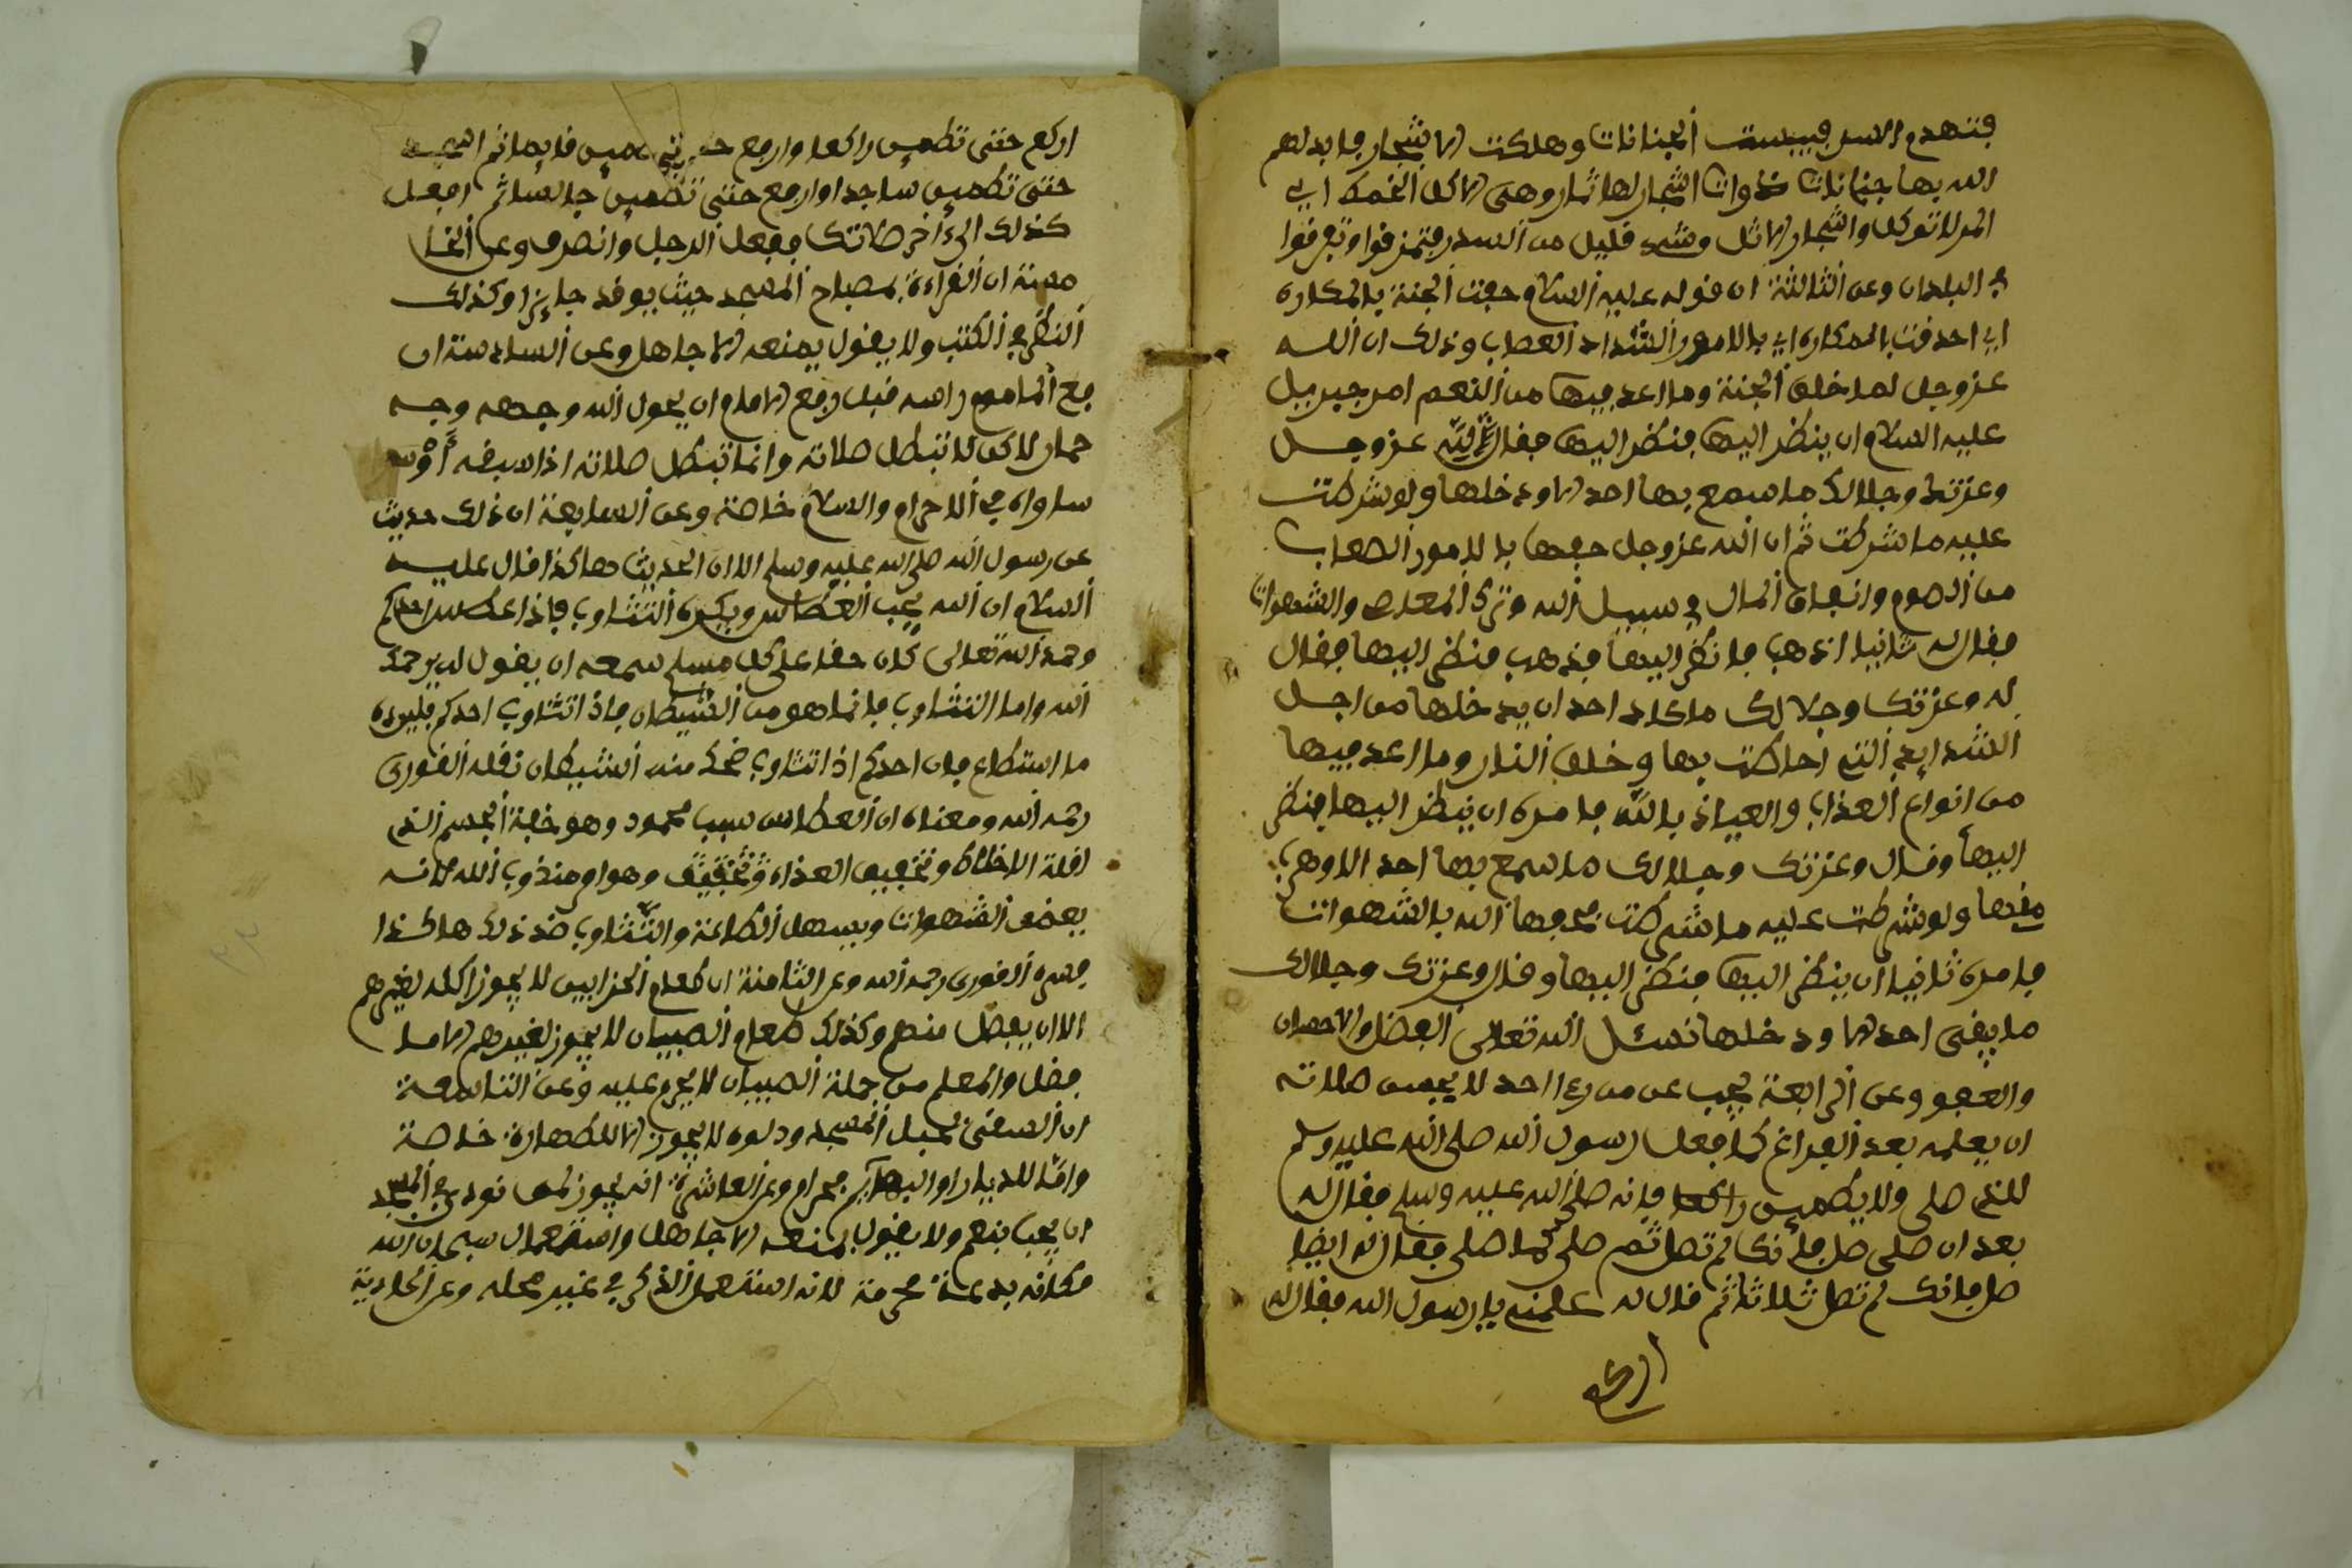 فتهدم السد فيبست الجنانات وهلكت الاشجار وابدلهم
الله بها جنانات ذوات اشجار لها ثمار وهي الاكل الخمط اي
المر لا توكل واشجار الاثل وشيء قليل من السدر فتمزقوا وتفرقوا
في البلدان وعن الثالثة ان قوله عليه السلام حفت الجنة بالمكاره
اي احدقت بالمكاره اي بالامور الشداد الصعاب وذلك ان الله
عز وجل لما خلق الجنة وما اعد فيها من النعم امر جبريل
عليه السلام ان ينظر اليها فنظر اليها فقال لله عز وجل
وعزتك وجلالك ما سمع بها احد الا ودخلها ولو شرطت
عليه ما شرطت ثم ان الله عز وجل حفها بالامور الصعاب
من الصوم وانفاق المال في سبيل الله وترك المعاصي والشهوات
فقال له ثانيا اذهب فانظر اليها فذهب فنظر اليها فقال
له وعزتك وجلالك ما كاد احد ان يدخلها من اجل
الشدايد التي احاطت بها وخلق النار وما اعد فيها
من انواع العذاب والعياذ بالله فامره ان ينظر اليها فنظر
اليها وقال وعزتك وجلالك ما سمع بها احد الا وهرب
منها ولو شرطت عليه ما شرطت فحفها الله بالشهوات
فامره ثانيا ان ينظر اليها فنظر اليها وقال وعزتك وجلالك
ما يبقى احد الا ودخلها نسئل الله تعالى الفضل والاحسان
والعفو وعن الرابعة يجب عن من رءا احد لا يحسن صلاته
ان يعلمه بعد الفراغ كما فعل رسول الله صلى الله عليه وسلم
للذي صلى ولا يطمين راكعا فانه صلى الله عليه وسلم فقال له
بعد ان صلى صل فانك لم تصل ثم صلى كما صلى فقال له ايضا
صل فانك لم تصل ثلاثا ثم قال له علمني يا رسول الله فقال له
اركع
اركع حتى تطمين راكعا وارفع حتى تطمين قايما ثم اسجد
حتى تطمين ساجدا وارفع حتى تطمين جالسا ثم افعل
كذلك الى ءاخر صلاتك ففعل الرجل وانصرف وعن الخا
مسة ان القراءة بمصباح المسجد حيث يوقد جايزا وكذلك
النظر في الكتب ولا يقول يمنعه الا جاهل وعن السادسة ان
رفع الماموم راسه قبل رفع الامام ان يحول الله وجهه وجه
حمار لاكن لا تبطل صلاته وانما تبطل صلاته اذا سبقه أو
ساواه في الاحرام والسلام خاصة وعن السابعة ان ذلك حديث
عن رسول الله صلى الله عليه وسلم الا ان الحديث هاكذا قال عليه
السلام ان الله يحب العطاس ويكره التثاوب فاذا عطس احدكم
وحمد الله تعالى كان حقا على كل مسلم سمعه ان يقول له يرحمك
الله واما التثاوب فانما هو من الشيطان فاذا تثاوب احدكم فليرده
ما استطاع فان احدكم اذا تثاوب ضحك منه الشيطان نقله الفورى
رحمه الله ومعناه ان العطاس سبب محمود وهو خفة الجسم الذي
لقلة الاخلاط وتخفيف الغذاء وهو امر مندوب الله لانه
يضعف الشهوات ويسهل الطاعة والتثاوب ضد ذلك هاكذا
فسره الفورى رحمه الله وعن الثامنة ان طعام الحزابين لا يجوز اكله لغيرهم
الا ان يفضل منهم وكذلك طعام الصبيان لا يجوز لغيرهم الا ما
فضل والمعلم من جملة الصبيان لا يحرم عليه وعن التاسعة
ان السقي بحبل المسجد ودلوه لا يجوز الا للطهارة خاصة
واما للديار او البهايم فحرام وعن العاشرة انه يجوز لمن نودي في المسجد
ان يجب بنعم ولا يقول بمنعه الا جاهل واستعمال سبحان الله
مكانه بدعة محرمة لانه استعمل الذكر في غير محله وعن الحادية